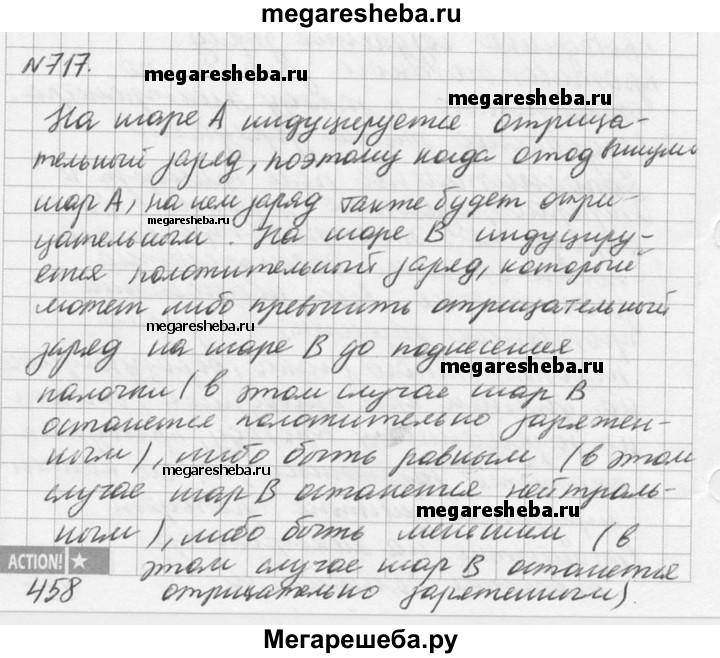 megaresheba.ru
N717.
megaresheba.ru
megaresheba.ru
На шаре А индуцируется отрица-
тельный заряд, поэтому когда отодвинули
шар А, на нем заряд также будет отри-
megaresheba.ru
цательным. На шаре В индуциру-
ется положительный заряд, который
может либо превысить отрицательный
megaresheba.ru
заряд на шаре В до поднесения
megaresheba.ru
палочки (в этом случае шар В
останется положительно заряжен-
ным), либо быть равным (в этом
megaresheba.ru
случае шар В останется нейтраль-
megaresheba.ru
ным), либо быть меньшим (в
ACTION!
этом случае шар В останется
458
отрицательно заряженным).
Мегарешеба.ру